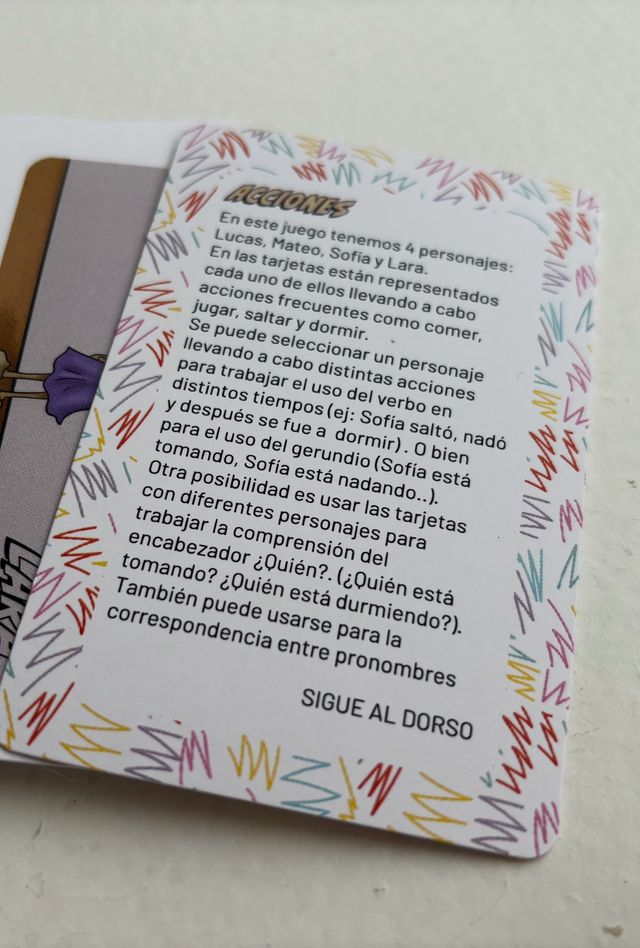 ACCIONES
En este juego tenemos 4 personajes:
Lucas, Mateo, Sofía y Lara.
En las tarjetas están representados
cada uno de ellos llevando a cabo
acciones frecuentes como comer,
jugar, saltar y dormir.
Se puede seleccionar un personaje
llevando a cabo distintas acciones
para trabajar el uso del verbo en
distintos tiempos (ej: Sofía saltó, nadó
y después se fue a dormir) . O bien
para el uso del gerundio (Sofía está
tomando, Sofía está nadando..).
Otra posibilidad es usar las tarjetas
con diferentes personajes para
trabajar la comprensión del
encabezador ¿Quién?. (¿Quién está
tomando? ¿Quién está durmiendo?).
También puede usarse para la
correspondencia entre pronombres
SIGUE AL DORSO